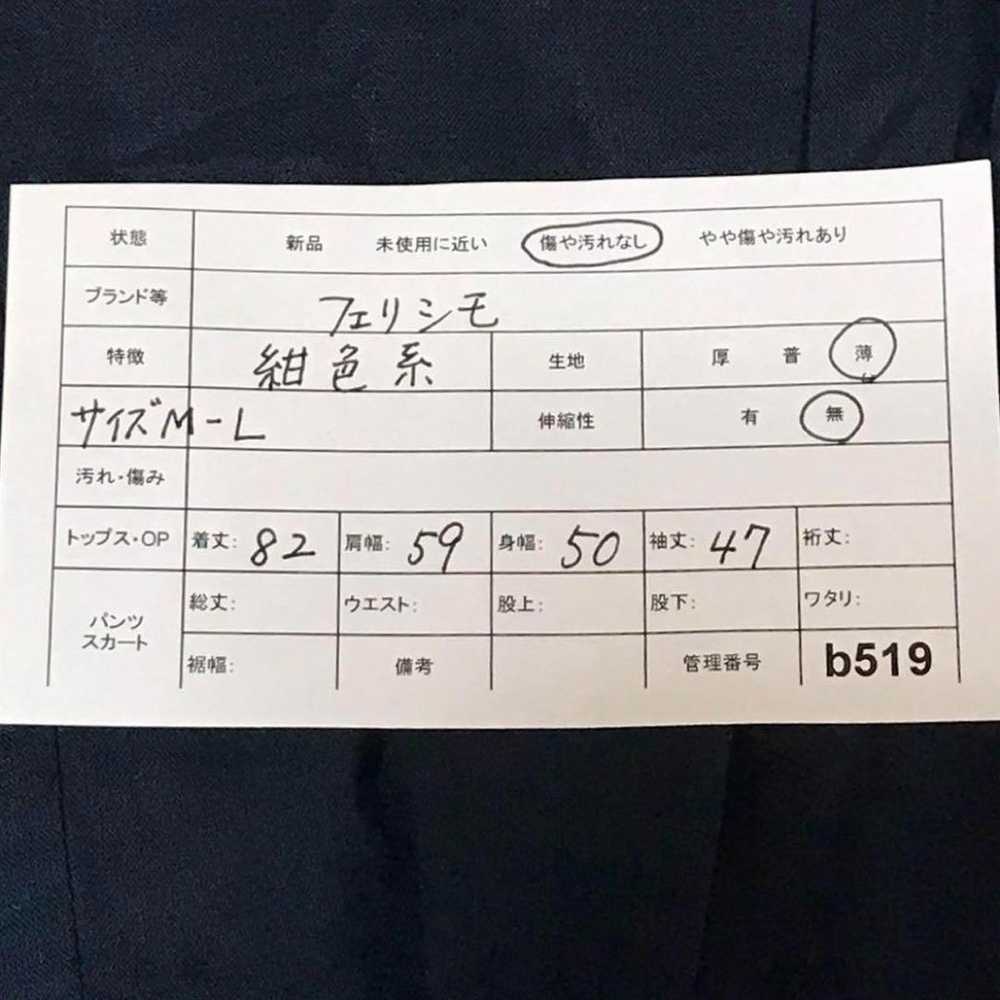 状態 新品 未使用に近い 傷や汚れなし やや傷や汚れあり
ブランド等 フェリシモ
特徴 紺色系 生地 厚 普 薄
サイズM-L 伸縮性 有 無
汚れ・傷み
トップス・OP 着丈: 82 肩幅: 59 身幅: 50 袖丈: 47 裄丈:
パンツ スカート 総丈: ウエスト: 股上: 股下: ワタリ:
裾幅: 備考 管理番号 b519